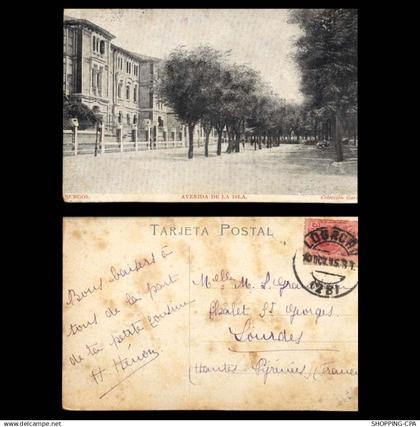 BURGOS.
AVENIDA DE LA ISLA.
Colección
TARJETA POSTAL
Bons baisers à
tous de la part
de ta petite cousine
H Hénon
Melle M.
Chalet St Georges
Lourdes
(Hautes-Pyrénées) (France
WWW.DELCAMPE.NET
SHOPPING-CPA